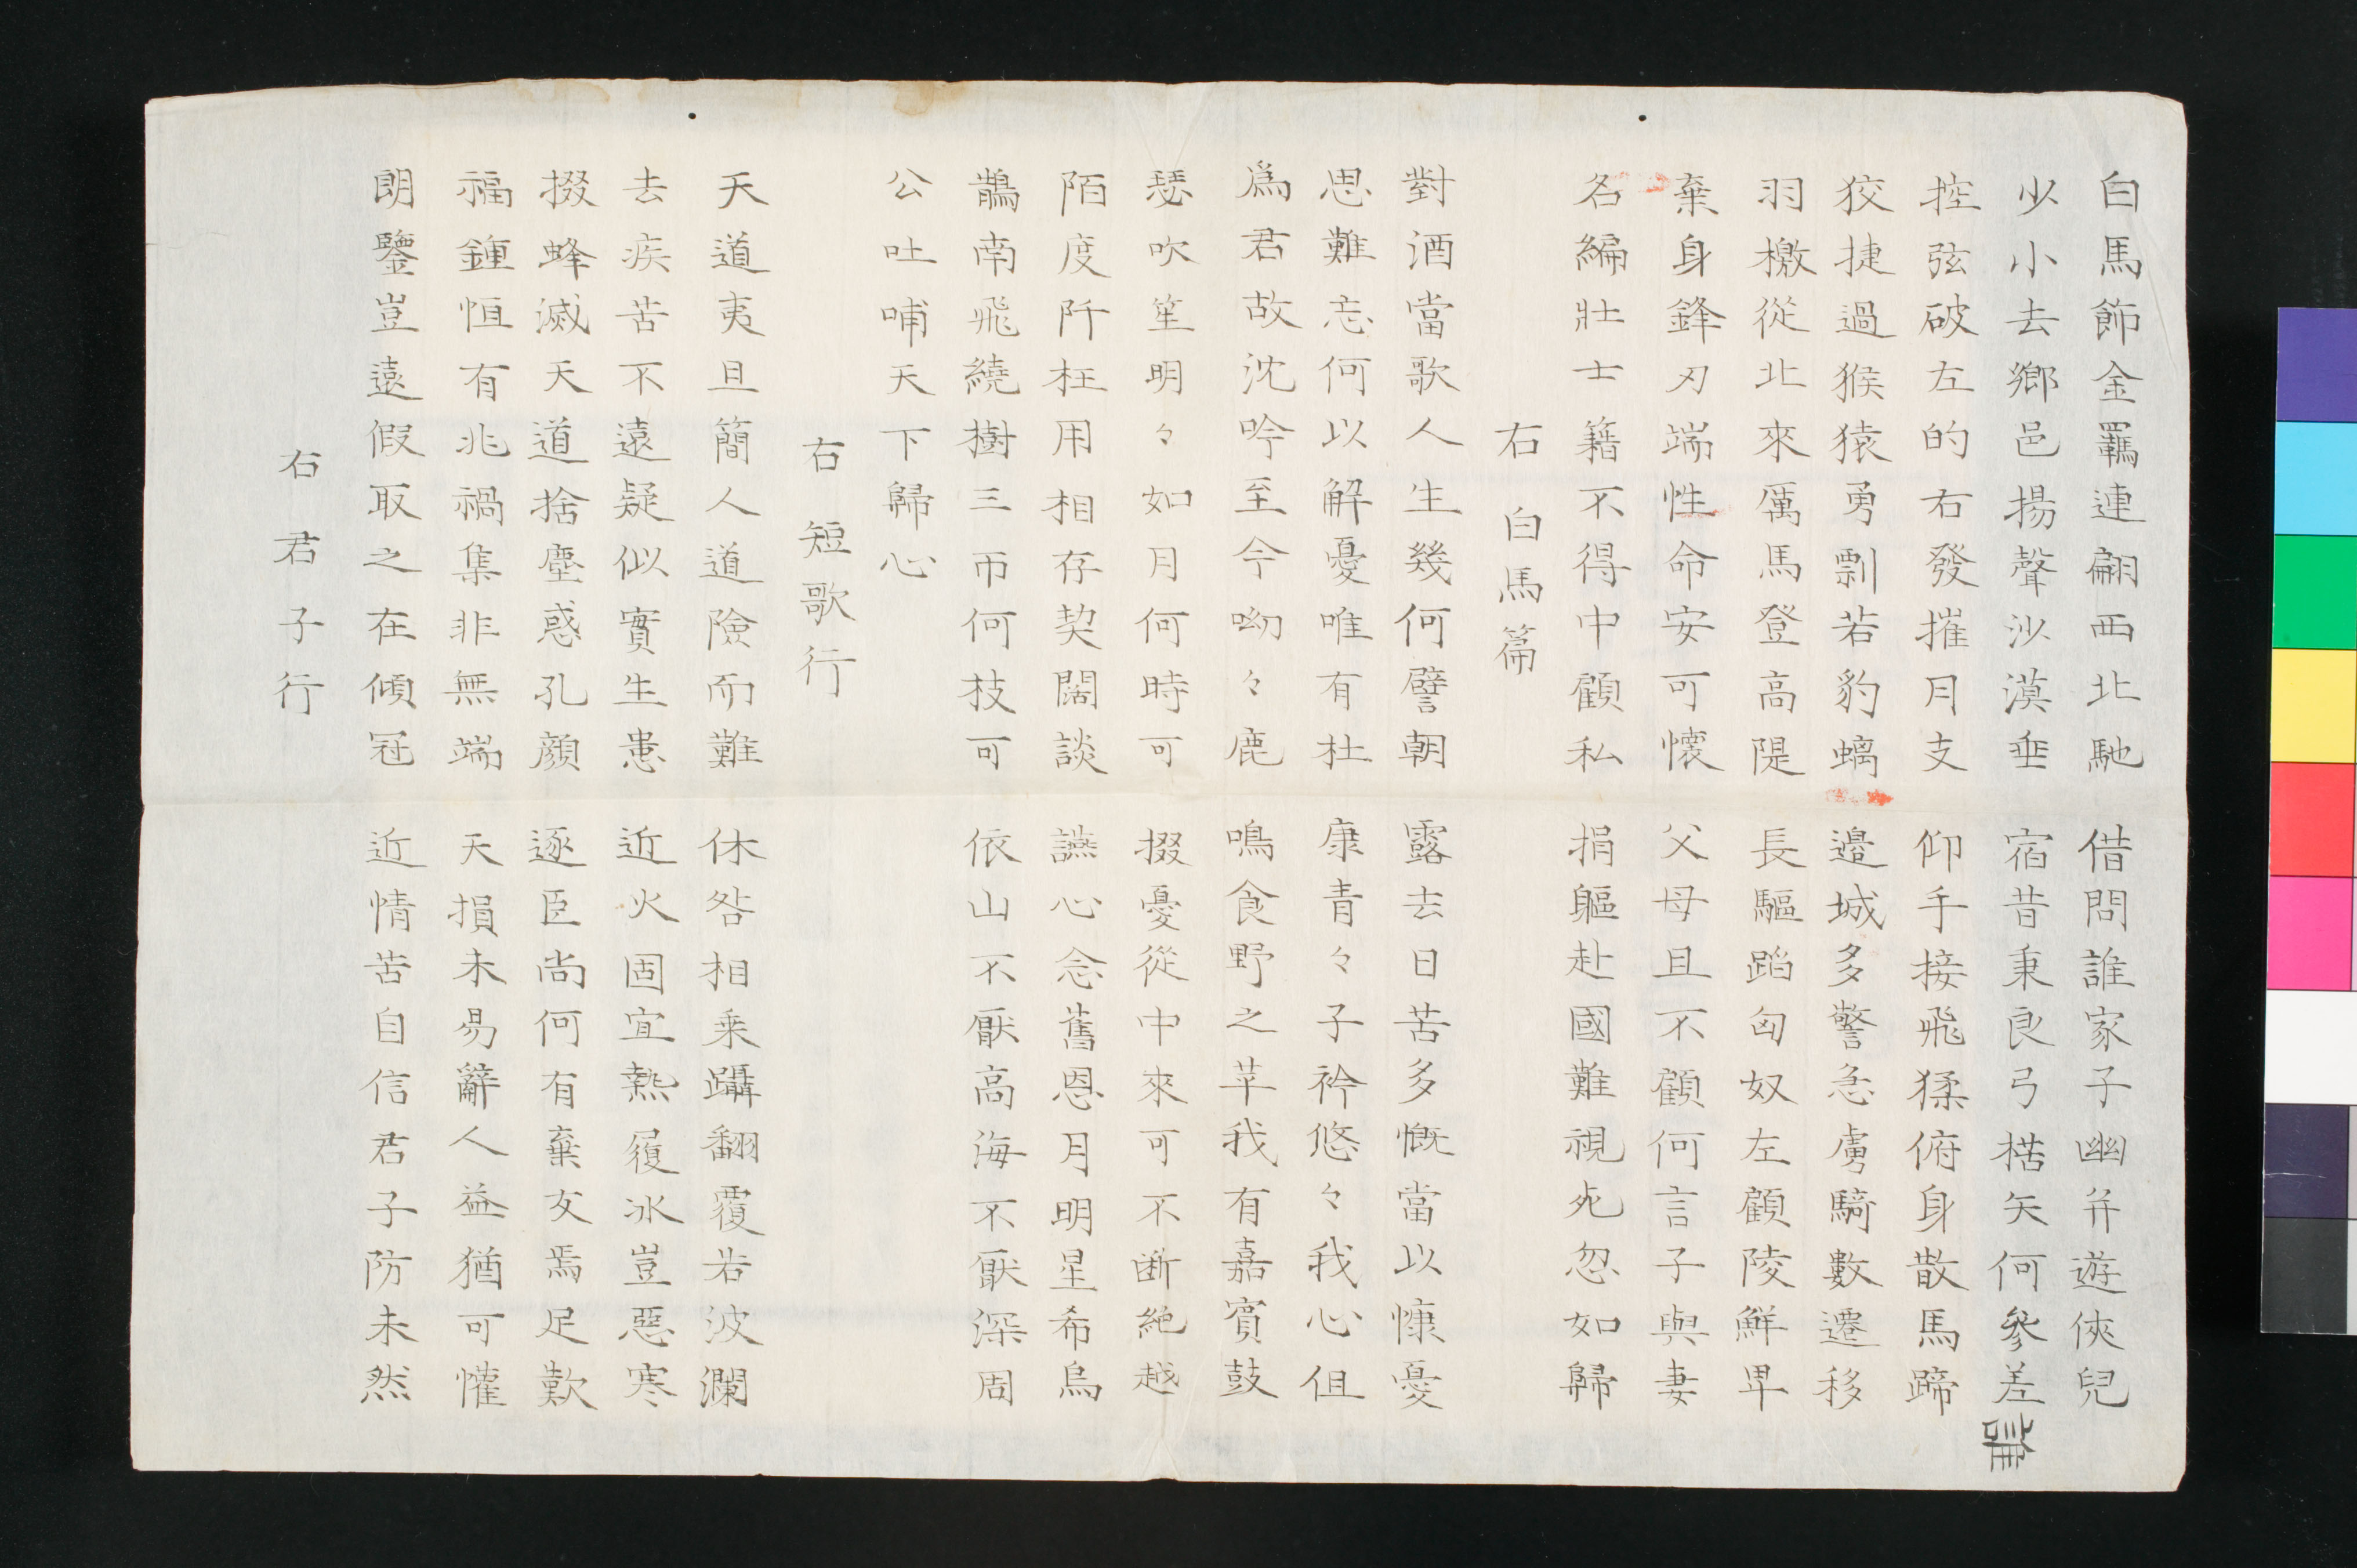 白馬飾金羈連翩西北馳借問誰家子幽并遊俠兒
少小去鄉邑揚聲沙漠垂宿昔秉良弓楛矢何參差
控弦破左的右發摧月支仰手接飛猱俯身散馬蹄
狡捷過猴猿勇剽若豹螭邊城多警急虜騎數遷移
羽檄從北來厲馬登高隄長驅蹈匈奴左顧陵鮮卑
棄身鋒刃端性命安可懷父母且不顧何言子與妻
名編壯士籍不得中顧私捐軀赴國難視死忽如歸
右白馬篇
對酒當歌人生幾何譬朝露去日苦多慨當以慷憂
思難忘何以解憂唯有杜康青々子衿悠々我心但
為君故沈吟至今呦々鹿鳴食野之苹我有嘉賓鼓
瑟吹笙明々如月何時可掇憂從中來可不断絶越
陌度阡枉用相存契闊談讌心念舊恩月明星希烏
鵲南飛繞樹三帀何枝可依山不厭高海不厭深周
公吐哺天下歸心
右短歌行
天道夷且簡人道險而難休咎相乗躡翻覆若波瀾
去疾苦不遠疑似實生患近火固宜熱履冰豈惡寒
掇蜂滅天道捨塵惑孔顔逐臣尚何有棄友焉足歎
福鍾恒有兆禍集非無端天損未易辭人益猶可懽
朗鑒豈遠假取之在傾冠近情苦自信君子防未然
右君子行